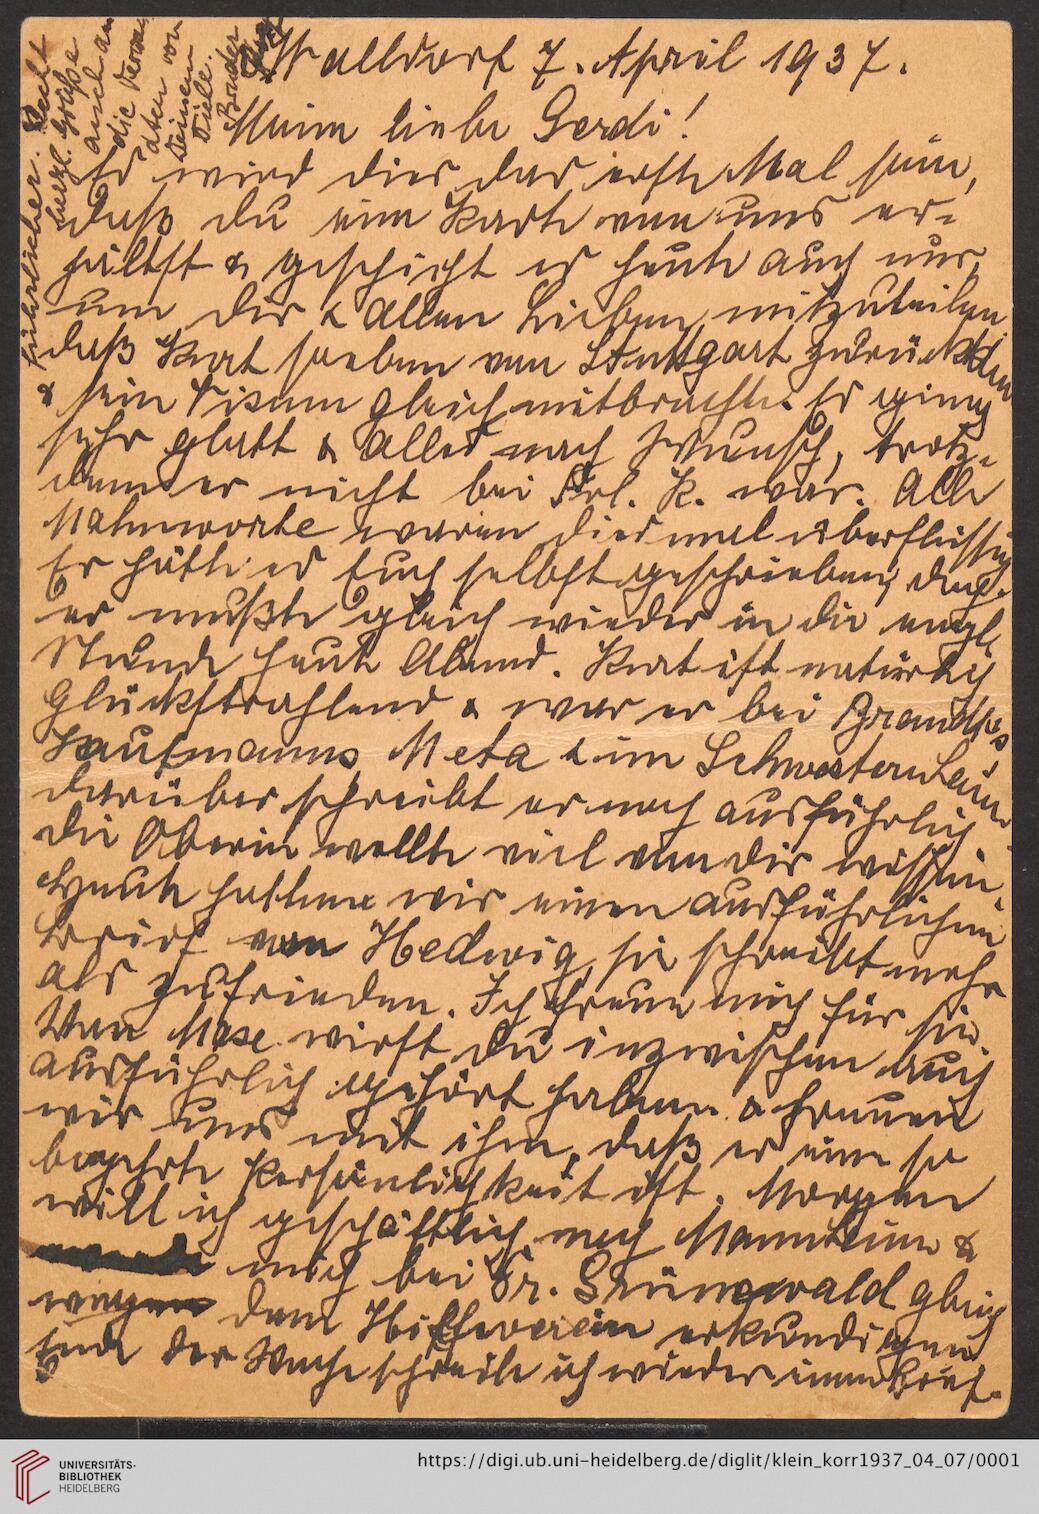 Walldorf 7. April 1937.
Meine liebe Gerdi!
Es wird dies das erste Mal sein,
daß Du eine Karte von uns er-
hältst & geschieht es heute auch nur,
um Dir & allen Lieben mitzuteilen,
daß Kurt soeben von Stuttgart zurückkam
& sein Visum gleich mitbrachte. Es ging
sehr glatt & alles nach Wunsch, trotz-
dem er nicht bei Frl. K. war. Alle
Mahnworte waren diesmal überflüssig.
Er hätte es Euch selbst geschrieben, doch
er mußte gleich wieder in die engl.
Stunde heute Abend. Kurt ist natürlich
Glückstrahlend & war er bei
Kaufmanns Meta & im Schwesternheim.
darüber schreibt er noch ausführlich
die Oberin wollte viel von Dir wissen.
Heute hatten wir einen ausführlichen
Brief von Hedwig, sie schreibt mehr
als zufrieden. Ich freue mich für sie.
Von Mose wirst Du inzwischen auch
ausführlich gehört haben & freuen
wir uns mit ihm, daß er eine so
begehrte Persönlichkeit ist. Morgen
will ich geschäftlich nach Mannheim &
mich bei Fr. Grünewald gleich
wegen dem Hilfsverein erkundigen
Ende der Woche schreibe ich wieder einen Brief
& führlicher. Recht
herzl. Grüße
auch an
die Verw-
ten von
Deinem
Bruder
UNIVERSITÄTS-
BIBLIOTHEK
HEIDELBERG
https://digi.ub.uni-heidelberg.de/diglit/klein_korr1937_04_07/0001